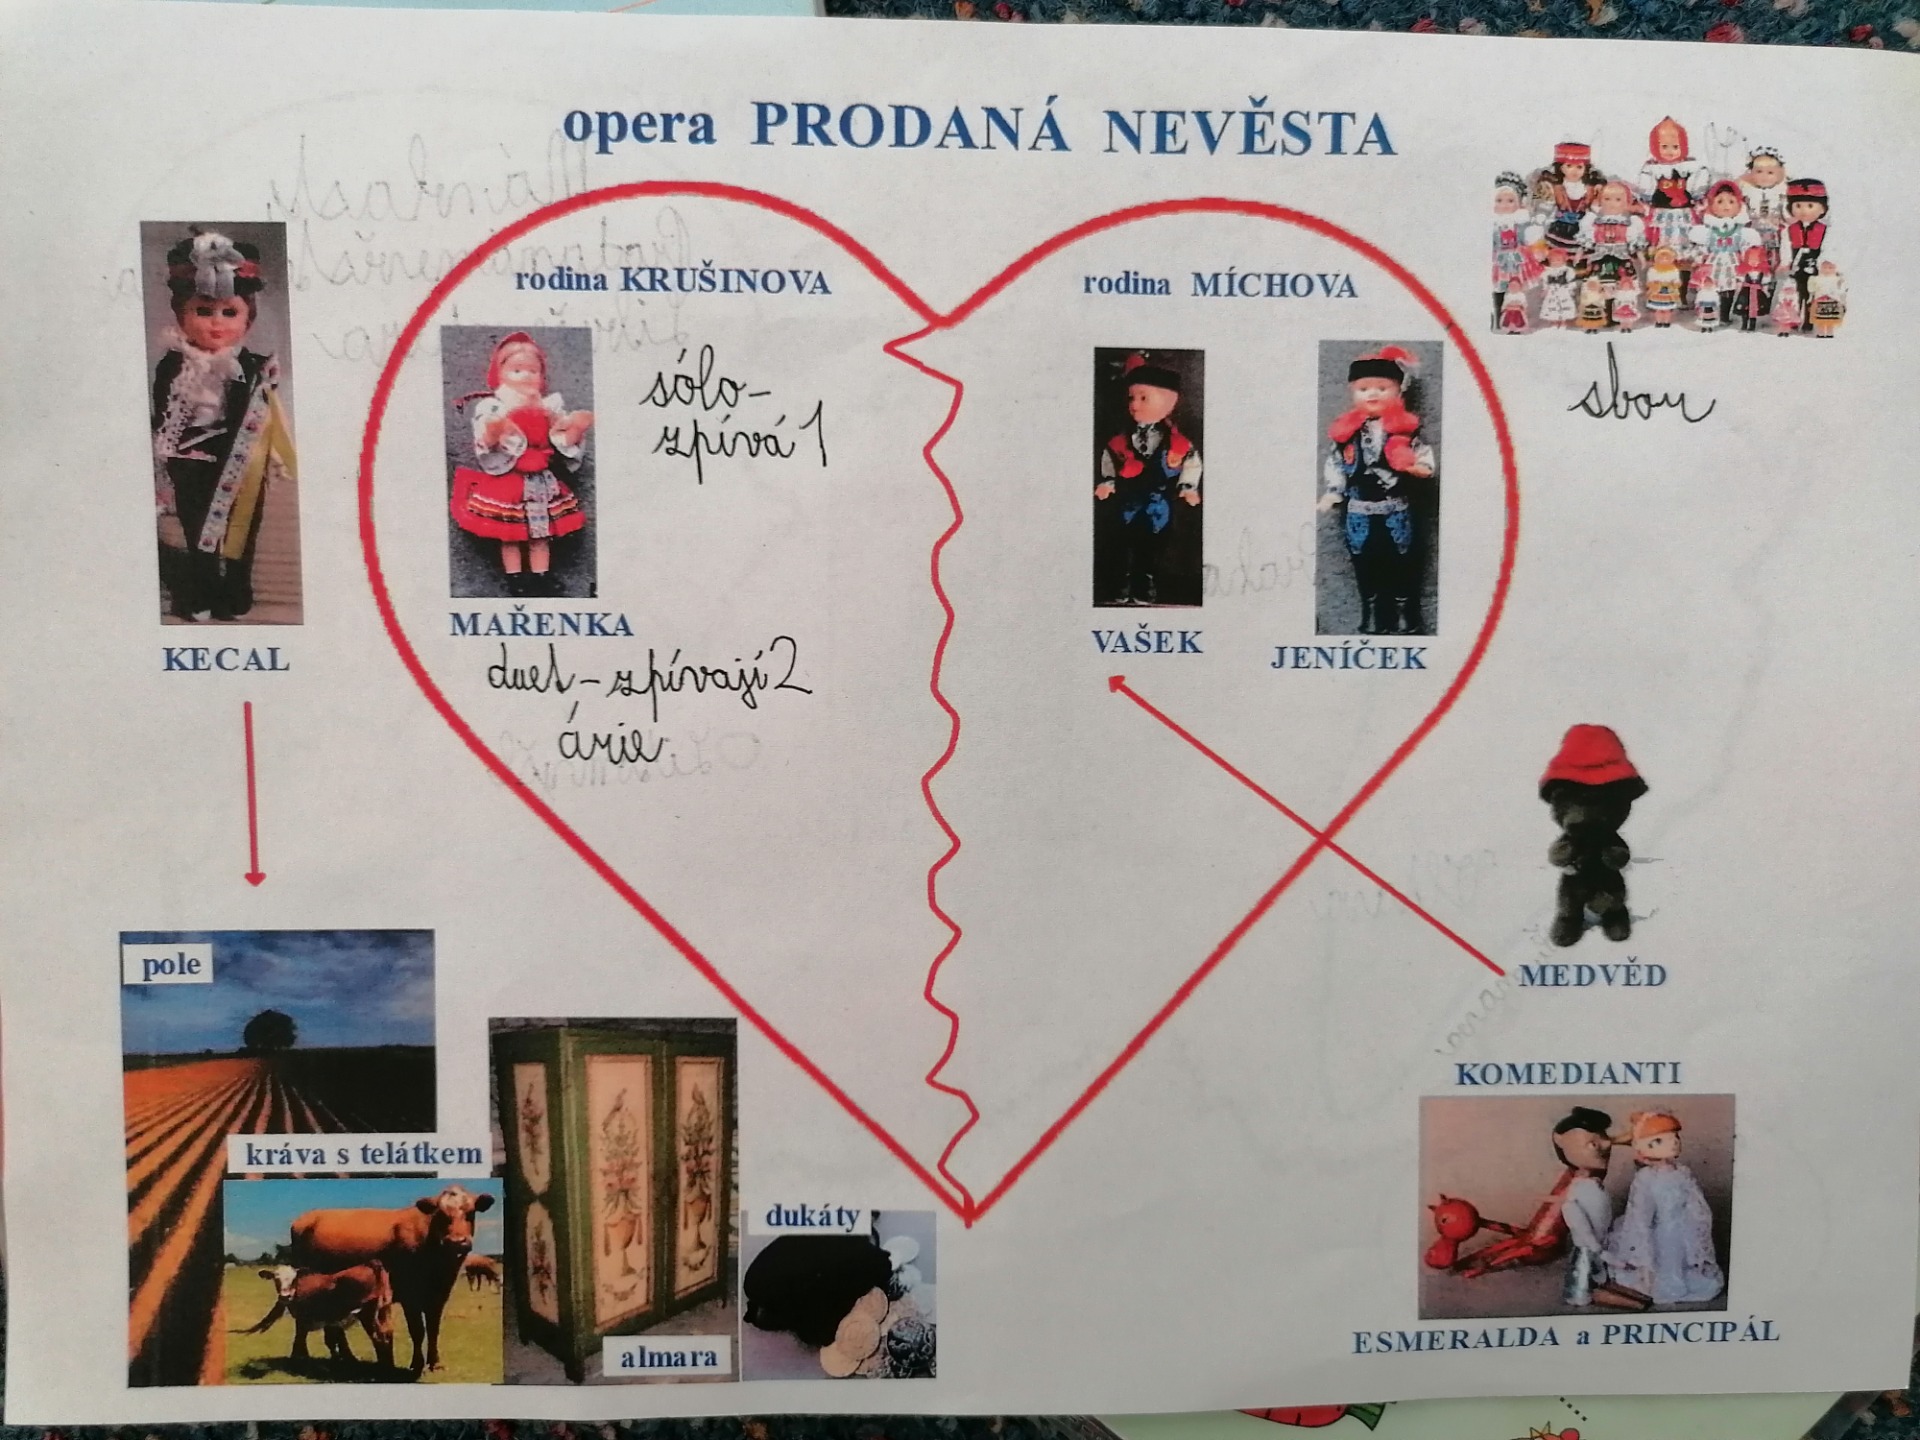 opera PRODANÁ NEVĚSTA
rodina KRUŠINOVA
rodina MÍCHOVA
sólo-
zpívá 1
sbor
MAŘENKA
VAŠEK
JENÍČEK
KECAL
duet-zpívají 2
árie
MEDVĚD
pole
KOMEDIANTI
kráva s telátkem
dukáty
almara
ESMERALDA a PRINCIPÁL